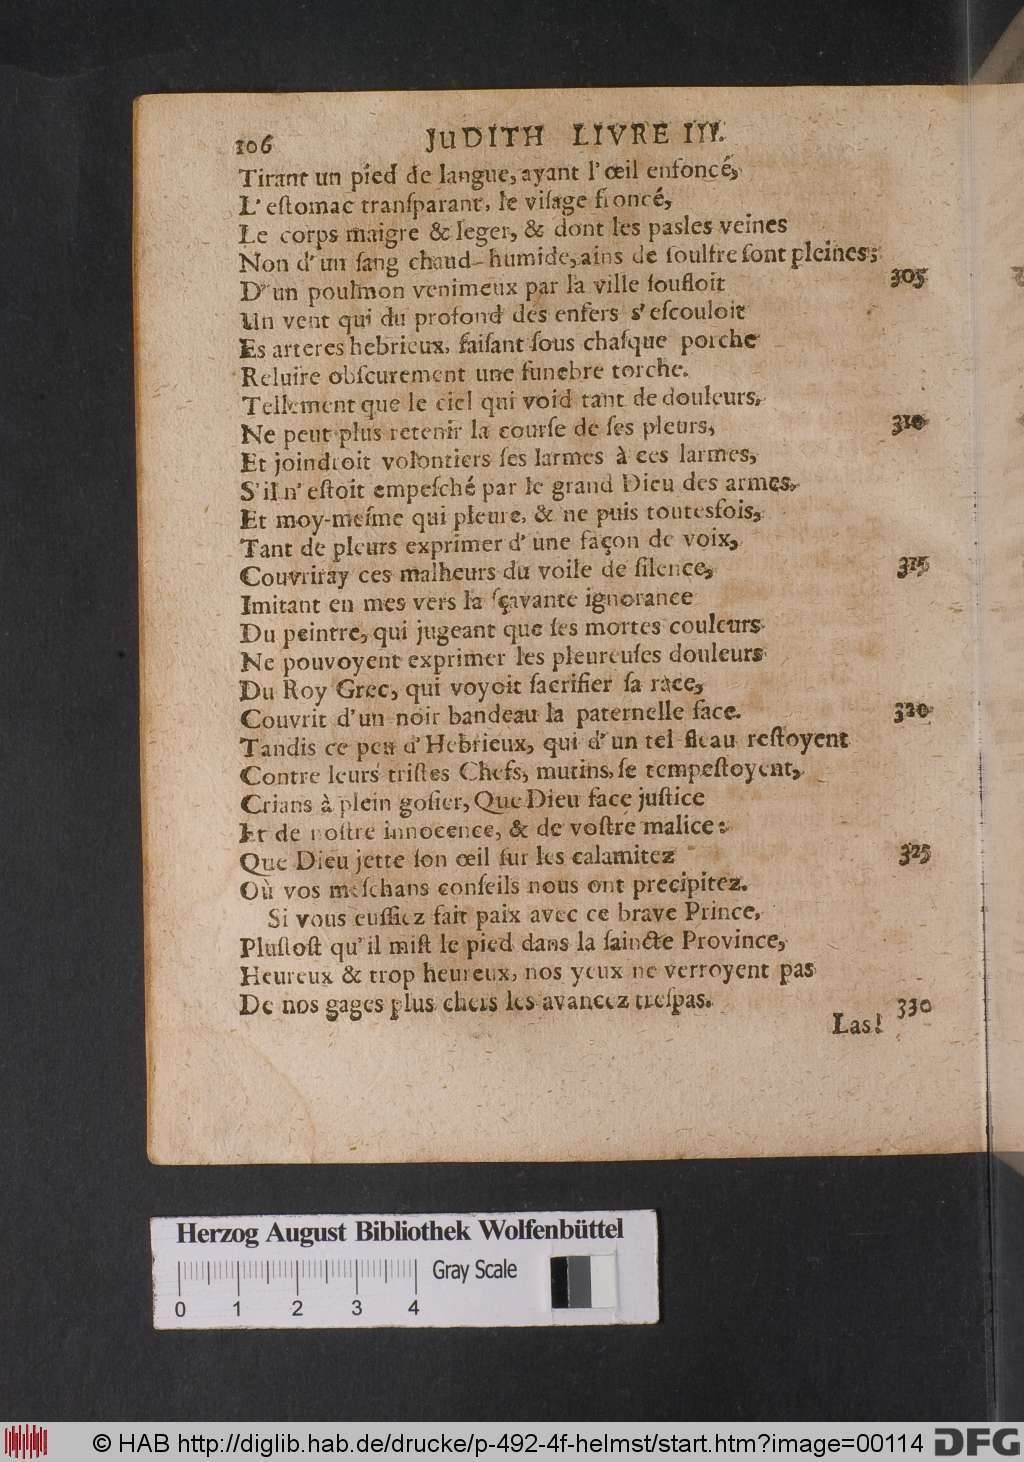 106 JUDITH LIVRE III.
Tirant un pied de langue, ayant l'œil enfoncé,
L'eſtomac tranſparant, le viſage froncé,
Le corps maigre & leger, & dont les pasles veines
Non d'un ſang chaud-humide, ains de ſoulfre ſont pleines;
D'un poulmon venimeux par la ville ſoufloit 305
Un vent qui du profond des enfers s'eſcouloit
Es arteres hebrieux, faiſant ſous chaſque porche
Reluire obſcurement une funebre torche.
Tellement que le ciel qui void tant de douleurs,
Ne peut plus retenir la courſe de ſes pleurs, 310
Et joindroit volontiers ſes larmes à ces larmes,
S'il n'eſtoit empeſché par le grand Dieu des armes,
Et moy-meſme qui pleure, & ne puis toutesfois,
Tant de pleurs exprimer d'une façon de voix,
Couvriray ces malheurs du voile de ſilence, 315
Imitant en mes vers la ſçavante ignorance
Du peintre, qui jugeant que ſes mortes couleurs
Ne pouvoyent exprimer les pleureuſes douleurs
Du Roy Grec, qui voyoit ſacrifier ſa race,
Couvrit d'un noir bandeau la paternelle face. 320
Tandis ce peu d'Hebrieux, qui d'un tel fleau reſtoyent
Contre leurs triſtes Chefs, mutins, ſe tempeſtoyent,
Crians à plein goſier, Que Dieu face juſtice
Et de noſtre innocence, & de voſtre malice:
Que Dieu jette ſon œil ſur les calamitez 325
Où vos meſchans conſeils nous ont precipitez.
Si vous euſſiez fait paix avec ce brave Prince,
Pluſtoſt qu'il miſt le pied dans la ſaincte Province,
Heureux & trop heureux, nos yeux ne verroyent pas
De nos gages plus chers les avancez treſpas. 330
Las!
Herzog August Bibliothek Wolfenbüttel
Gray Scale
0 1 2 3 4
© HAB http://diglib.hab.de/drucke/p-492-4f-helmst/start.htm?image=00114 DFG